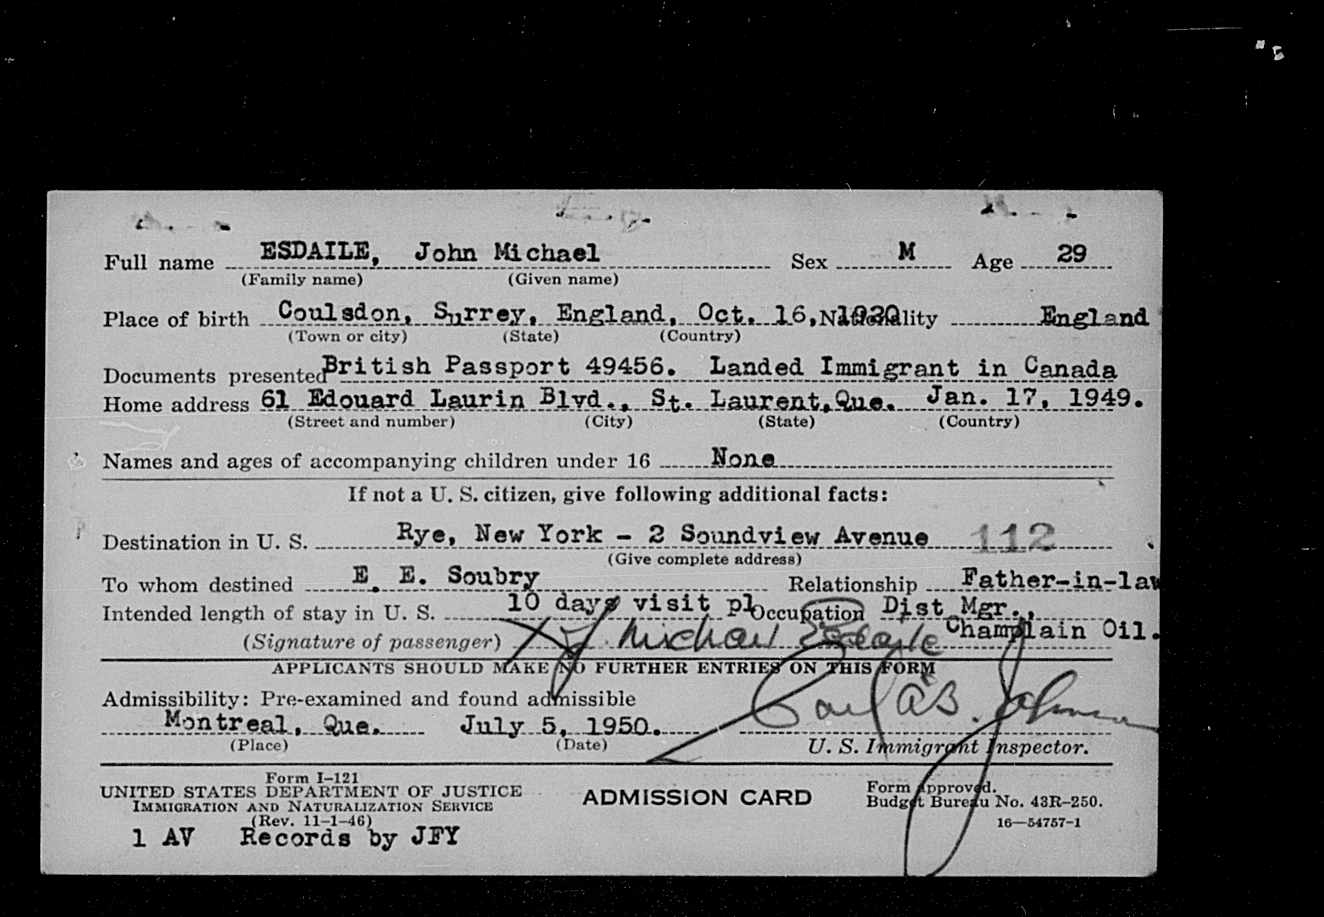 Full name ESDAILE, John Michael Sex M Age 29
(Family name) (Given name)
Place of birth Coulsdon, Surrey, England, Oct. 16, 1920 Nationality England
(Town or city) (State) (Country)
Documents presented British Passport 49456. Landed Immigrant in Canada
Home address 61 Edouard Laurin Blvd., St. Laurent, Que. Jan. 17, 1949.
(Street and number) (City) (State) (Country)
Names and ages of accompanying children under 16 None
If not a U. S. citizen, give following additional facts:
Destination in U. S. Rye, New York - 2 Soundview Avenue 112
(Give complete address)
To whom destined E. E. Soubry Relationship Father-in-law
Intended length of stay in U. S. 10 days visit pl Occupation Dist Mgr.,
(Signature of passenger) J. Michael Esdaile Champlain Oil.
APPLICANTS SHOULD MAKE NO FURTHER ENTRIES ON THIS FORM
Admissibility: Pre-examined and found admissible
Montreal, Que. July 5, 1950.
(Place) (Date) U. S. Immigrant Inspector.
Form I-121
UNITED STATES DEPARTMENT OF JUSTICE
IMMIGRATION AND NATURALIZATION SERVICE
(Rev. 11-1-46)
ADMISSION CARD
Form approved.
Budget Bureau No. 43R-250.
16—54757-1
1 AV Records by JFY